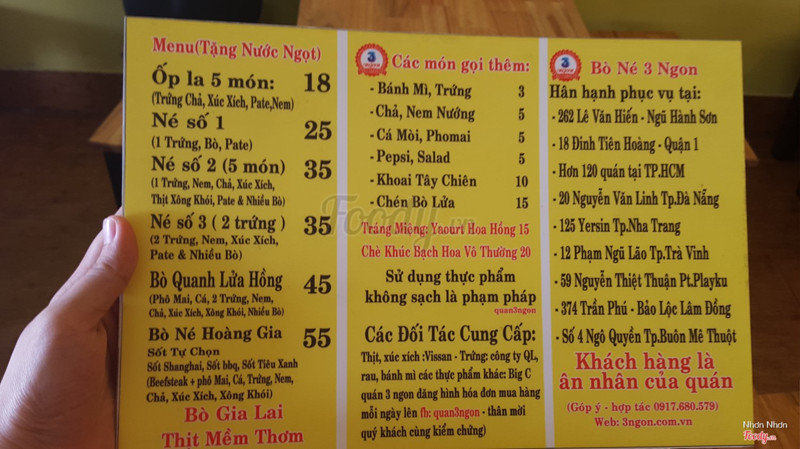 Menu(Tặng Nước Ngọt)
Ốp la 5 món: 18
(Trứng Chả, Xúc Xích, Pate,Nem)
Né số 1 25
(1 Trứng, Bò, Pate)
Né số 2 (5 món) 35
(1 Trứng, Nem, Chả, Xúc Xích,
Thịt Xông Khói, Pate & Nhiều Bò)
Né số 3 ( 2 trứng ) 35
(2 Trứng, Nem, Xúc Xích,
Pate & Nhiều Bò)
Bò Quanh Lửa Hồng 45
(Phô Mai, Cá, 2 Trứng, Nem,
Chả, Xúc Xích, Xông Khói, Nhiều Bò)
Bò Né Hoàng Gia 55
Sốt Tự Chọn
Sốt Shanghai, Sốt bbq, Sốt Tiêu Xanh
(Beefsteak + phô Mai, Cá, Trứng, Nem,
Chả, Xúc Xích, Xông Khói)
Bò Gia Lai
Thịt Mềm Thơm
3
Các món gọi thêm:
- Bánh Mì, Trứng 3
- Chả, Nem Nướng 5
- Cá Mòi, Phomai 5
- Pepsi, Salad 5
- Khoai Tây Chiên 10
- Chén Bò Lửa 15
Tráng Miệng: Yaourt Hoa Hồng 15
Chè Khúc Bạch Hoa Vô Thường 20
Sử dụng thực phẩm
không sạch là phạm pháp
quan3ngon
Các Đối Tác Cung Cấp:
Thịt, xúc xích :Vissan - Trứng: công ty QL,
rau, bánh mì các thực phẩm khác: Big C
quán 3 ngon đăng hình hóa đơn mua hàng
mỗi ngày lên fb: quan3ngon - thân mời
quý khách cùng kiểm chứng)
3
Bò Né 3 Ngon
Hân hạnh phục vụ tại:
- 262 Lê Văn Hiến - Ngũ Hành Sơn
- 18 Đinh Tiên Hoàng - Quận 1
- Hơn 120 quán tại TP.HCM
- 20 Nguyễn Văn Linh Tp.Đà Nẵng
- 125 Yersin Tp.Nha Trang
- 12 Phạm Ngũ Lão Tp.Trà Vinh
- 59 Nguyễn Thiệt Thuận Pt.Playku
- 374 Trần Phú - Bảo Lộc Lâm Đồng
- Số 4 Ngô Quyền Tp.Buôn Mê Thuột
Khách hàng là
ân nhân của quán
(Góp ý - hợp tác 0917.680.579)
Web: 3ngon.com.vn
Foody.vn
Nhơn Nhơn
Foody.vn